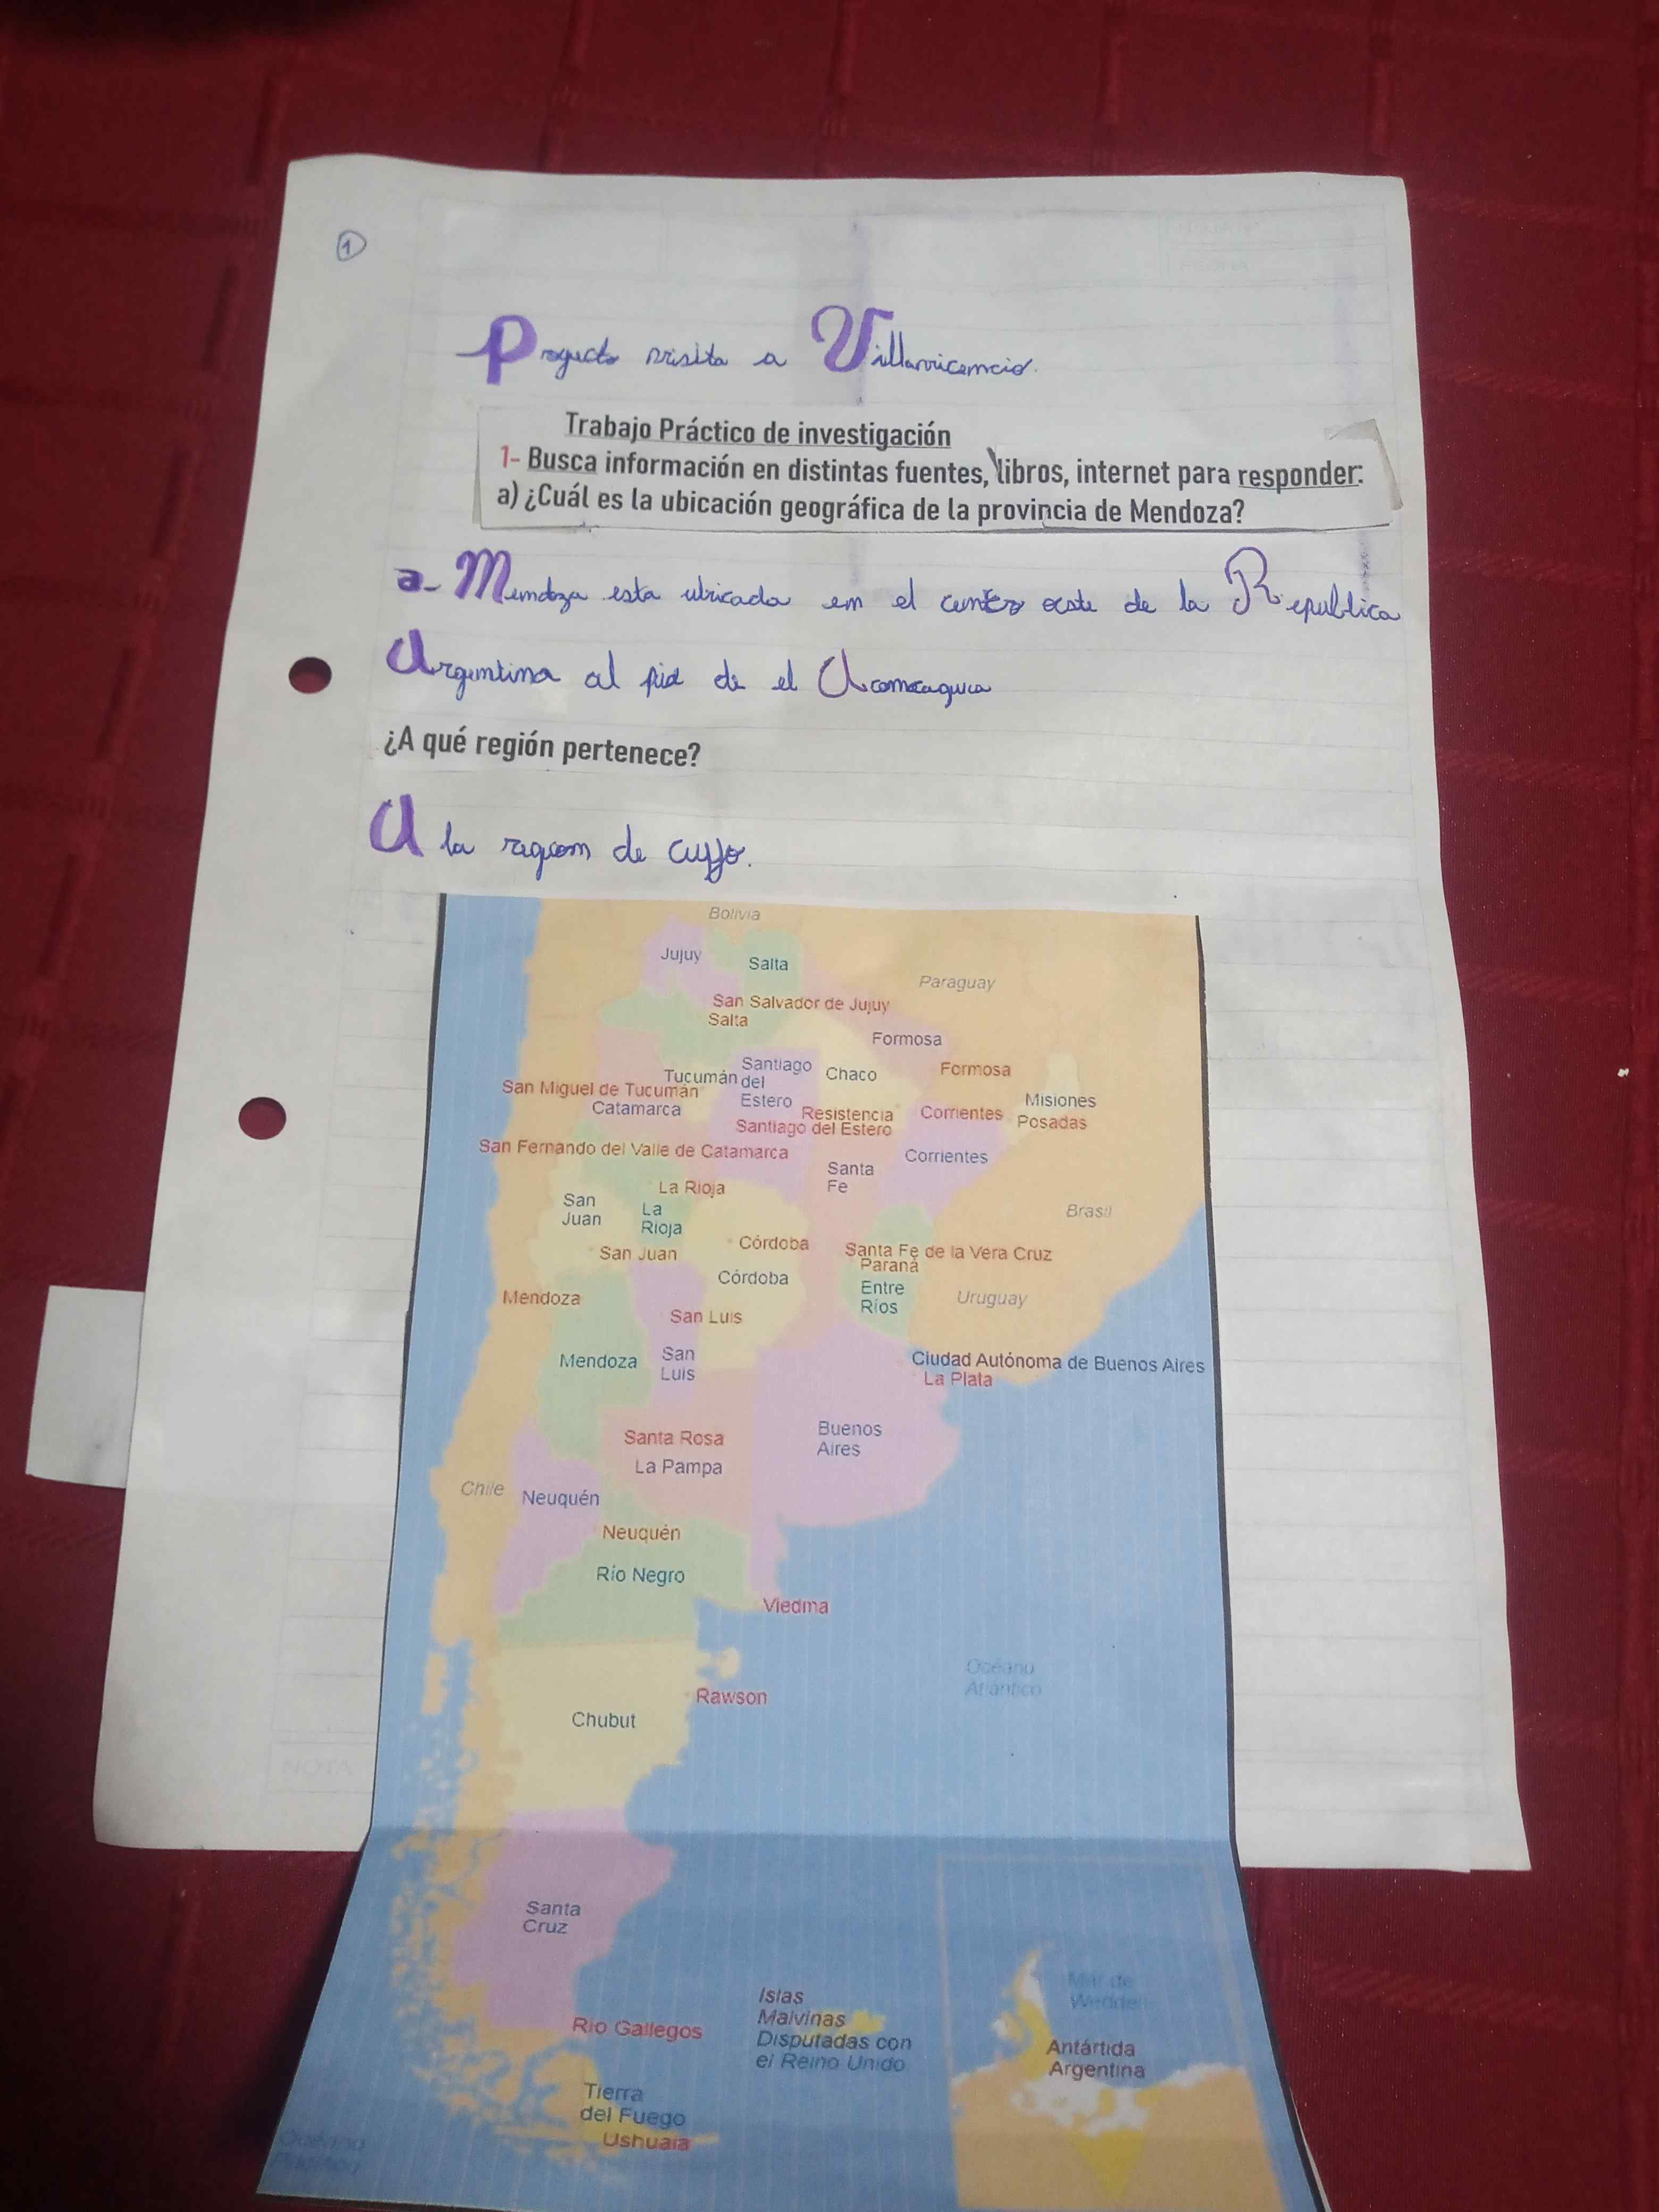 1
Proyecto visita a Villavicencio.
Trabajo Práctico de investigación
1- Busca información en distintas fuentes, libros, internet para responder:
a) ¿Cuál es la ubicación geográfica de la provincia de Mendoza?
a- Mendoza esta ubicada en el centro oeste de la Republica
Argentina al pie de el Aconcagua
¿A qué región pertenece?
A la region de cuyo.
Bolivia
Jujuy
Salta
Paraguay
San Salvador de Jujuy
Salta
Formosa
Santiago
del
Estero
Tucumán
Chaco
Formosa
San Miguel de Tucumán
Catamarca
Misiones
Resistencia
Corrientes
Posadas
Santiago del Estero
San Fernando del Valle de Catamarca
Corrientes
Santa
Fe
La Rioja
San
Juan
La
Rioja
Brasil
San Juan
Córdoba
Santa Fe de la Vera Cruz
Paraná
Córdoba
Entre
Ríos
Mendoza
Uruguay
San Luis
Mendoza
San
Luis
Ciudad Autónoma de Buenos Aires
La Plata
Buenos
Aires
Santa Rosa
La Pampa
Chile
Neuquén
Neuquén
Río Negro
Viedma
Océano
Atlántico
Rawson
Chubut
Santa
Cruz
Islas
Malvinas
Disputadas con
el Reino Unido
Mar de
Weddel
Río Gallegos
Antártida
Argentina
Tierra
del Fuego
Ushuaia
Océano
Pacífico